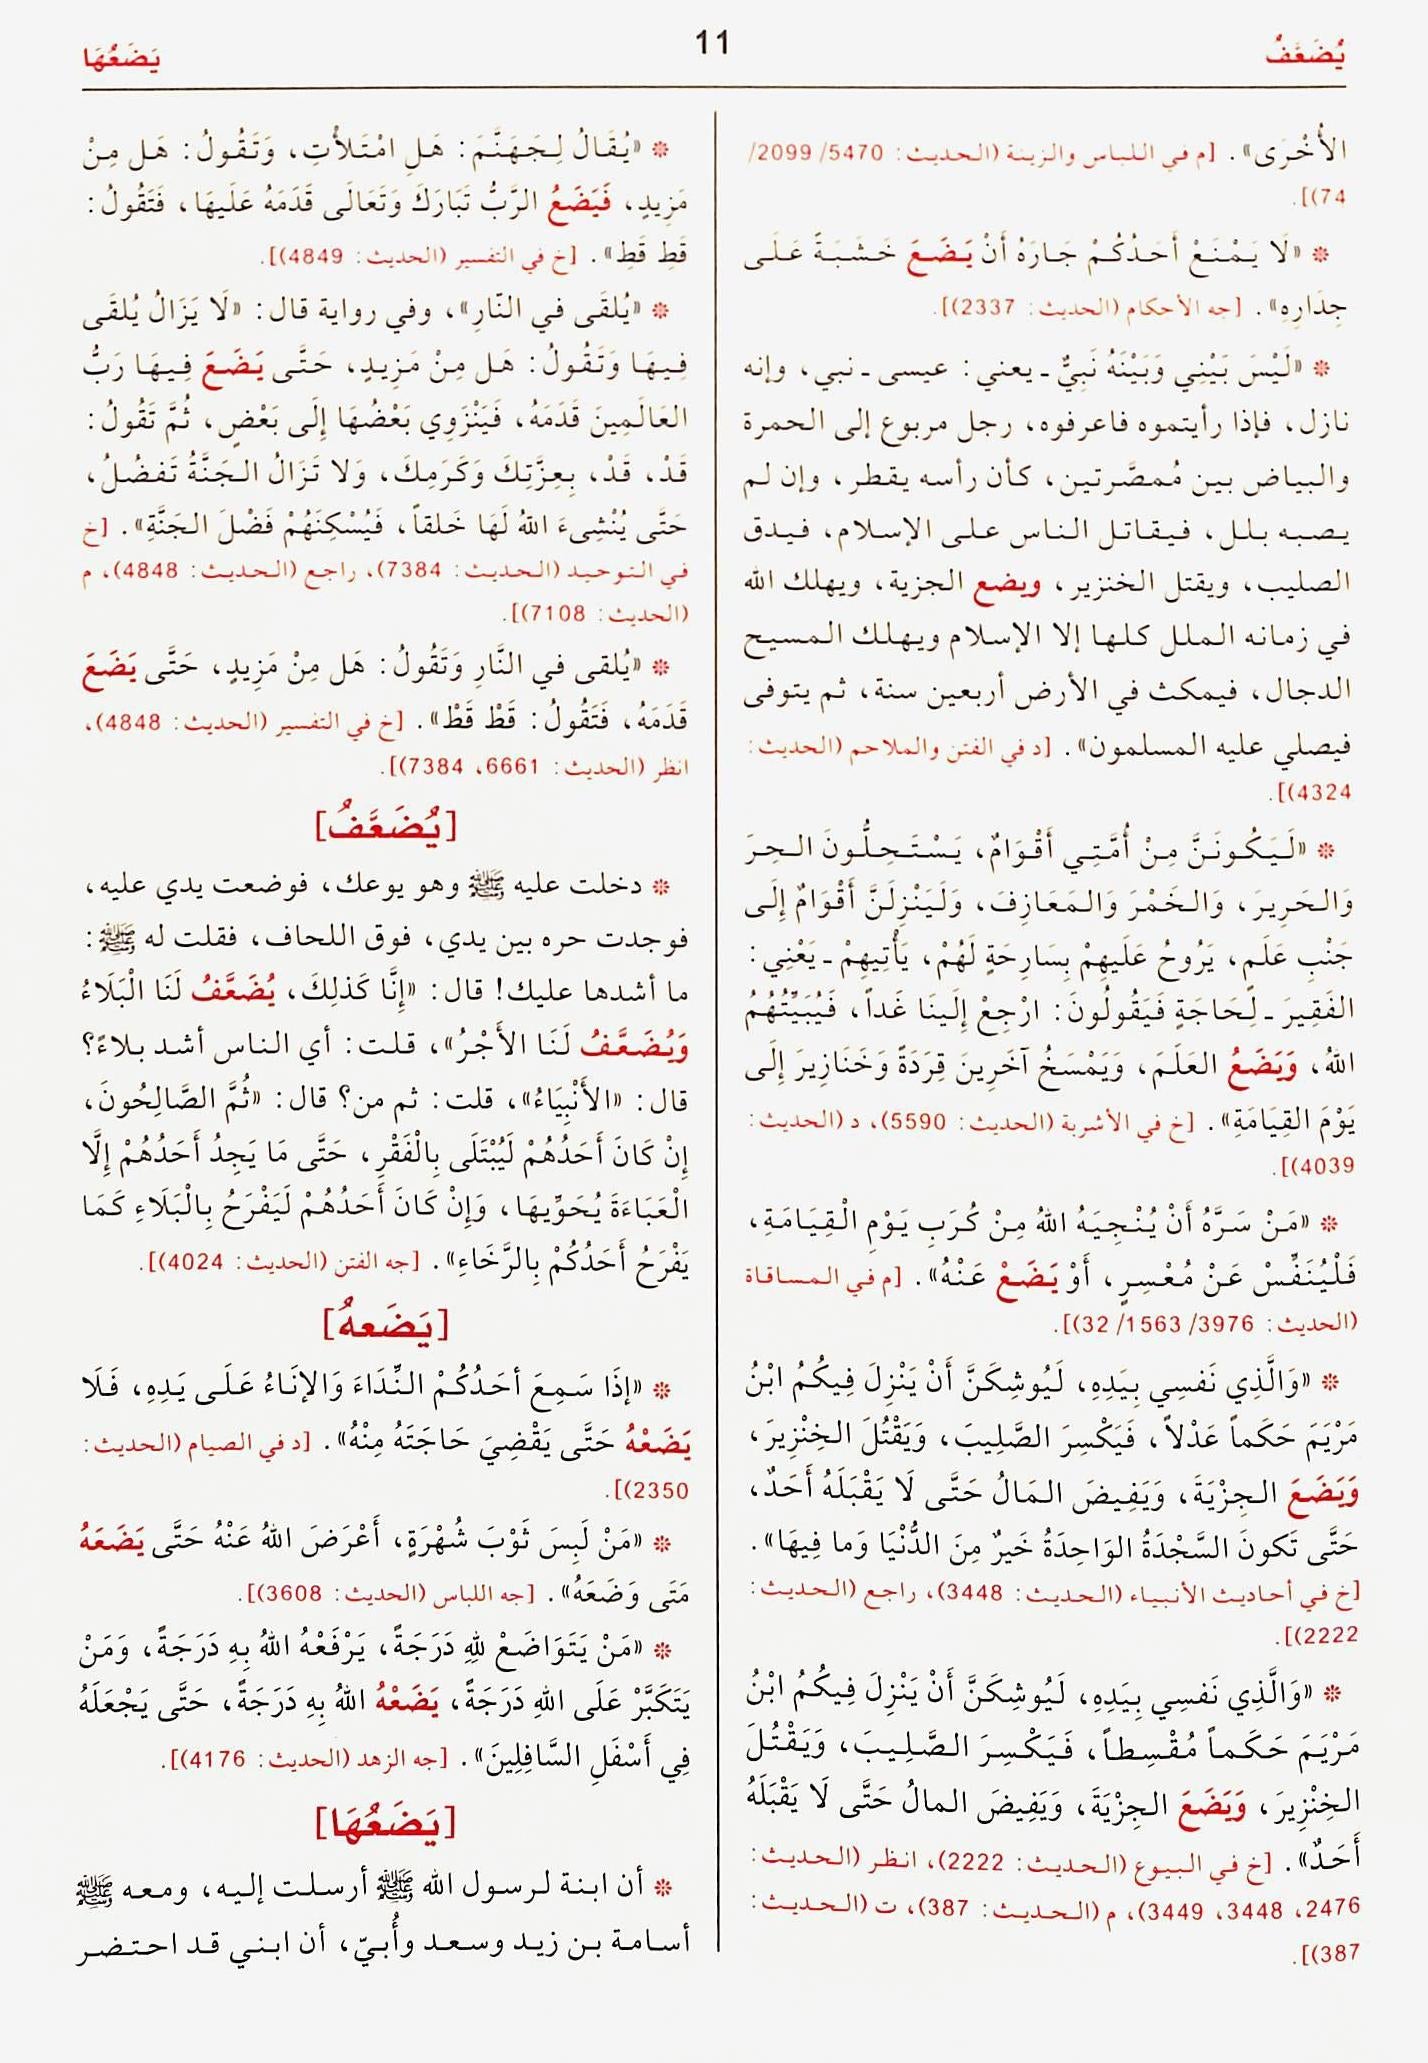 يُضَعَّفُ
11
يَضَعُهَا
الأُخْرَى». [م في اللباس والزينة (الحديث: 5470/ 2099/
74)].
* «لَا يَمْنَعْ أَحَدُكُمْ جَارَهُ أَنْ يَضَعَ خَشَبَةً عَلَى
جِدَارِهِ». [جه الأحكام (الحديث: 2337)].
* «لَيْسَ بَيْنِي وَبَيْنَهُ نَبِيٌّ ـ يعني: عيسى ـ نبي، وإنه
نازل، فإذا رأيتموه فاعرفوه، رجل مربوع إلى الحمرة
والبياض بين مُمصَّرتين، كأن رأسه يقطر، وإن لم
يصبه بلل، فيقاتل الناس على الإسلام، فيدق
الصليب، ويقتل الخنزير، ويضع الجزية، ويهلك الله
في زمانه الملل كلها إلا الإسلام ويهلك المسيح
الدجال، فيمكث في الأرض أربعين سنة، ثم يتوفى
فيصلي عليه المسلمون». [د في الفتن والملاحم (الحديث:
4324)].
* «لَيَكُونَنَّ مِنْ أُمَّتِي أَقْوَامٌ، يَسْتَحِلُّونَ الحِرَ
وَالحَرِيرَ، وَالخَمْرَ وَالمَعَازِفَ، وَلَيَنْزِلَنَّ أَقْوَامٌ إِلَى
جَنْبِ عَلَمٍ، يَرُوحُ عَلَيهِمْ بِسَارِحَةٍ لَهُمْ، يَأْتِيهِمْ ـ يَعْنِي:
الفَقِيرَ ـ لِحَاجَةٍ فَيَقُولُونَ: ارْجِعْ إِلَينَا غَداً، فَيُبَيِّتُهُمُ
اللهُ، وَيَضَعُ العَلَمَ، وَيَمْسَخُ آخَرِينَ قِرَدَةً وَخَنَازِيرَ إِلَى
يَوْمَ القِيَامَةِ». [خ في الأشربة (الحديث: 5590)، د (الحديث:
4039)].
* «مَنْ سَرَّهُ أَنْ يُنْجِيَهُ اللهُ مِنْ كُرَبِ يَوْمِ الْقِيَامَةِ،
فَلْيُنَفِّسْ عَنْ مُعْسِرٍ، أَوْ يَضَعْ عَنْهُ». [م في المساقاة
(الحديث: 3976/ 1563/ 32)].
* «وَالَّذِي نَفسِي بِيَدِهِ، لَيُوشِكَنَّ أَنْ يَنْزِلَ فِيكُمُ ابْنُ
مَرْيَمَ حَكَماً عَدْلاً، فَيَكْسِرَ الصَّلِيبَ، وَيَقْتُلَ الخِنْزِيرَ،
وَيَضَعَ الجِزْيَةَ، وَيَفِيضَ المَالُ حَتَّى لَا يَقْبَلَهُ أَحَدٌ،
حَتَّى تَكونَ السَّجْدَةُ الوَاحِدَةُ خَيرٌ مِنَ الدُّنْيَا وَما فِيهَا».
[خ في أحاديث الأنبياء (الحديث: 3448)، راجع (الحديث:
2222)].
* «وَالَّذِي نَفسِي بِيَدِهِ، لَيُوشِكَنَّ أَنْ يَنْزِلَ فِيكُمُ ابْنُ
مَرْيَمَ حَكَماً مُقْسِطاً، فَيَكْسِرَ الصَّلِيبَ، وَيَقْتُلَ
الخِنْزِيرَ، وَيَضَعَ الجِزْيَةَ، وَيَفِيضَ المالُ حَتَّى لَا يَقْبَلَهُ
أَحَدٌ». [خ في البيوع (الحديث: 2222)، انظر (الحديث:
2476، 3448، 3449)، م (الحديث: 387)، ت (الحديث:
387)].
* «يُقَالُ لِجَهَنَّمَ: هَلِ امْتَلأْتِ، وَتَقُولُ: هَل مِنْ
مَزِيدٍ، فَيَضَعُ الرَّبُّ تَبَارَكَ وَتَعَالَى قَدَمَهُ عَلَيهَا، فَتَقُولُ:
قَطِ قَطِ». [خ في التفسير (الحديث: 4849)].
* «يُلقَى في النّارِ»، وفي رواية قال: «لَا يَزَالُ يُلقَى
فِيهَا وَتَقُولُ: هَل مِنْ مَزِيدٍ، حَتَّى يَضَعَ فِيهَا رَبُّ
العَالَمِينَ قَدَمَهُ، فَيَنْزَوِي بَعْضُهَا إِلَى بَعْضٍ، ثُمَّ تَقُولُ:
قَدْ، قَدْ، بِعِزَّتِكَ وَكَرَمِكَ، وَلا تَزَالُ الجَنَّةُ تَفضُلُ،
حَتَّى يُنْشِىءَ اللهُ لَهَا خَلقاً، فَيُسْكِنَهُمْ فَضْلَ الجَنَّةِ». [خ
في التوحيد (الحديث: 7384)، راجع (الحديث: 4848)، م
(الحديث: 7108)].
* «يُلقى في النَّارِ وَتَقُولُ: هَل مِنْ مَزِيدٍ، حَتَّى يَضَعَ
قَدَمَهُ، فَتَقُولُ: قَطْ قَطْ». [خ في التفسير (الحديث: 4848)،
انظر (الحديث: 6661، 7384)].
[يُضَعَّفُ]
* دخلت عليه ﷺ وهو يوعك، فوضعت يدي عليه،
فوجدت حره بين يدي، فوق اللحاف، فقلت له ﷺ:
ما أشدها عليك! قال: «إِنَّا كَذلِكَ، يُضَعَّفُ لَنَا الْبَلَاءُ
وَيُضَعَّفُ لَنَا الأَجْرُ»، قلت: أي الناس أشد بلاءً؟
قال: «الأَنْبِيَاءُ»، قلت: ثم من؟ قال: «ثُمَّ الصَّالِحُونَ،
إِنْ كَانَ أَحَدُهُمْ لَيُبْتَلَى بِالْفَقْرِ، حَتَّى مَا يَجِدُ أَحَدُهُمْ إِلَّا
الْعَبَاءَةَ يُحَوِّيهَا، وَإِنْ كَانَ أَحَدُهُمْ لَيَفْرَحُ بِالْبَلَاءِ كَمَا
يَفْرَحُ أَحَدُكُمْ بِالرَّخَاءِ». [جه الفتن (الحديث: 4024)].
[يَضَعهُ]
* «إذَا سَمِعَ أحَدُكُمْ النِّدَاءَ وَالإنَاءُ عَلَى يَدِهِ، فَلَا
يَضَعْهُ حَتَّى يَقْضِيَ حَاجَتَهُ مِنْهُ». [د في الصيام (الحديث:
2350)].
* «مَنْ لَبِسَ ثَوْبَ شُهْرَةٍ، أَعْرَضَ اللهُ عَنْهُ حَتَّى يَضَعَهُ
مَتَى وَضَعَهُ». [جه اللباس (الحديث: 3608)].
* «مَنْ يَتَوَاضَعْ لِلهِ دَرَجَةً، يَرْفَعْهُ اللهُ بِهِ دَرَجَةً، وَمَنْ
يَتَكَبَّرْ عَلَى اللهِ دَرَجَةً، يَضَعْهُ اللهُ بِهِ دَرَجَةً، حَتَّى يَجْعَلَهُ
فِي أَسْفَلِ السَّافِلِينَ». [جه الزهد (الحديث: 4176)].
[يَضَعُهَا]
* أن ابنة لرسول الله ﷺ أرسلت إليه، ومعه ﷺ
أسامة بن زيد وسعد وأُبيّ، أن ابني قد احتضر